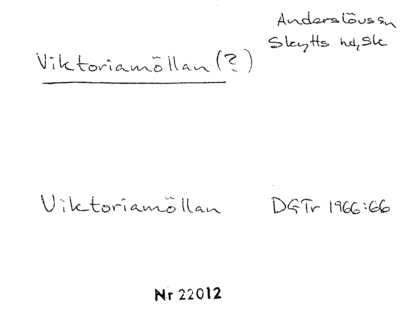 Anderslövs sn
Skytts hd, Sk
Viktoriamöllan (?)
Viktoriamöllan DGTr 1966:66
Nr 22012